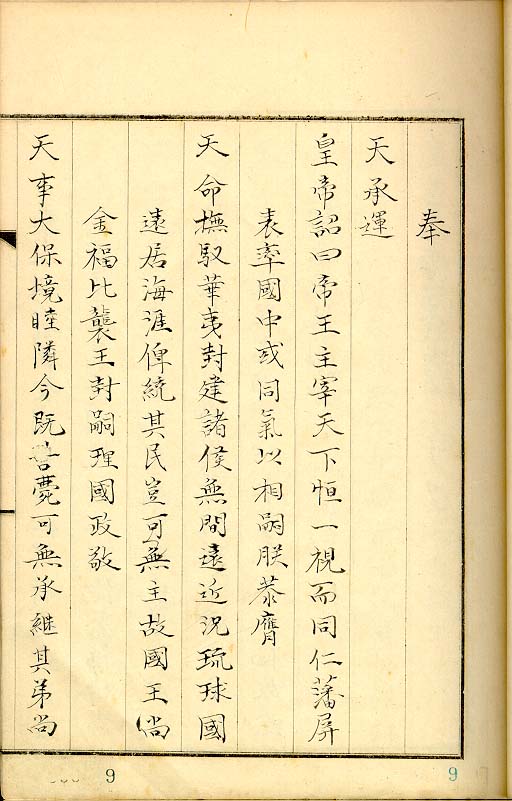 奉
天承運
皇帝詔曰帝王主宰天下恒一視而同仁藩屏
表率國中或同氣以相嗣朕恭膺
天命撫馭華夷封建諸侯無間遠近況琉球國
遠居海涯俾統其民豈可無主故國王尚
金福比襲王封嗣理國政敬
天事大保境睦隣今既薨可無承継其弟尚
9
9